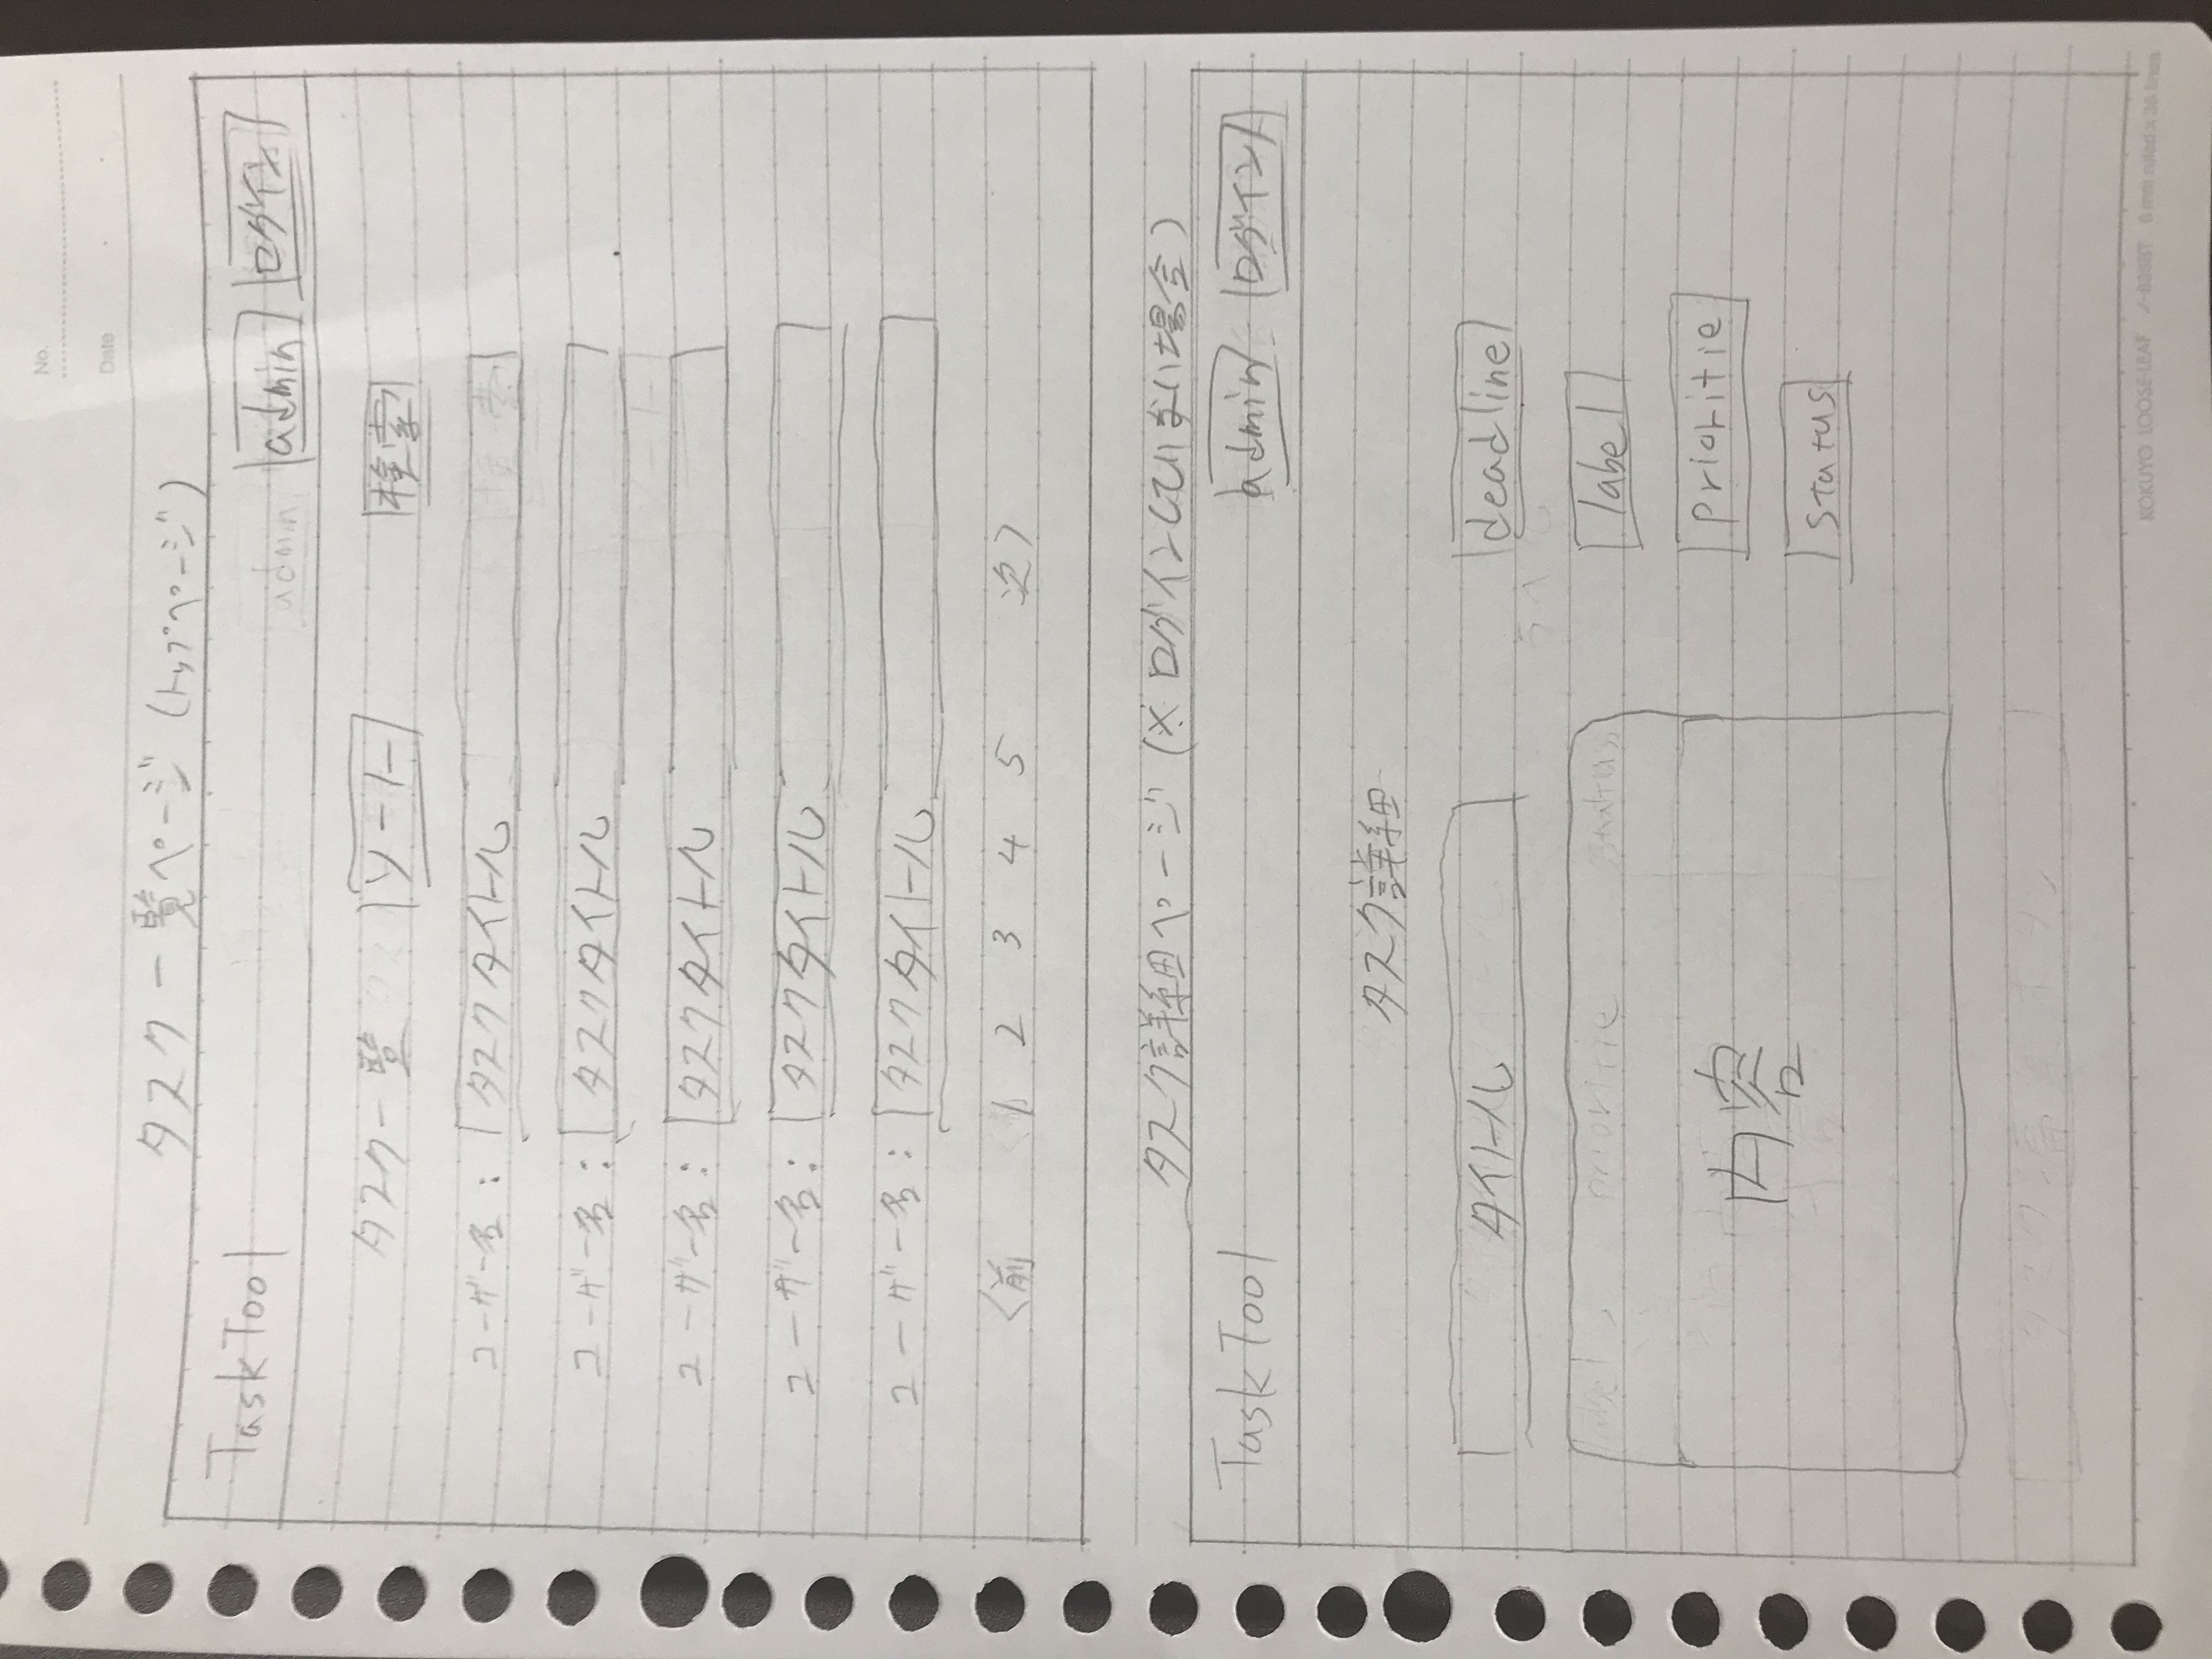 No.
Date
タスク一覧ページ (トップページ)
TaskTool admin ログイン
タスク一覧 ソート 検索
ユーザー名 : タスクタイトル
ユーザー名 : タスクタイトル
ユーザー名 : タスクタイトル
ユーザー名 : タスクタイトル
ユーザー名 : タスクタイトル
〈前 1 2 3 4 5 次〉
タスク詳細ページ (※ ログインしていない場合)
TaskTool admin ログイン
タスク詳細
タイトル deadline
label
prioritie
内容
status
KOKUYO LOOSE-LEAF ノ-836BT 6 mm ruled x 36 lines